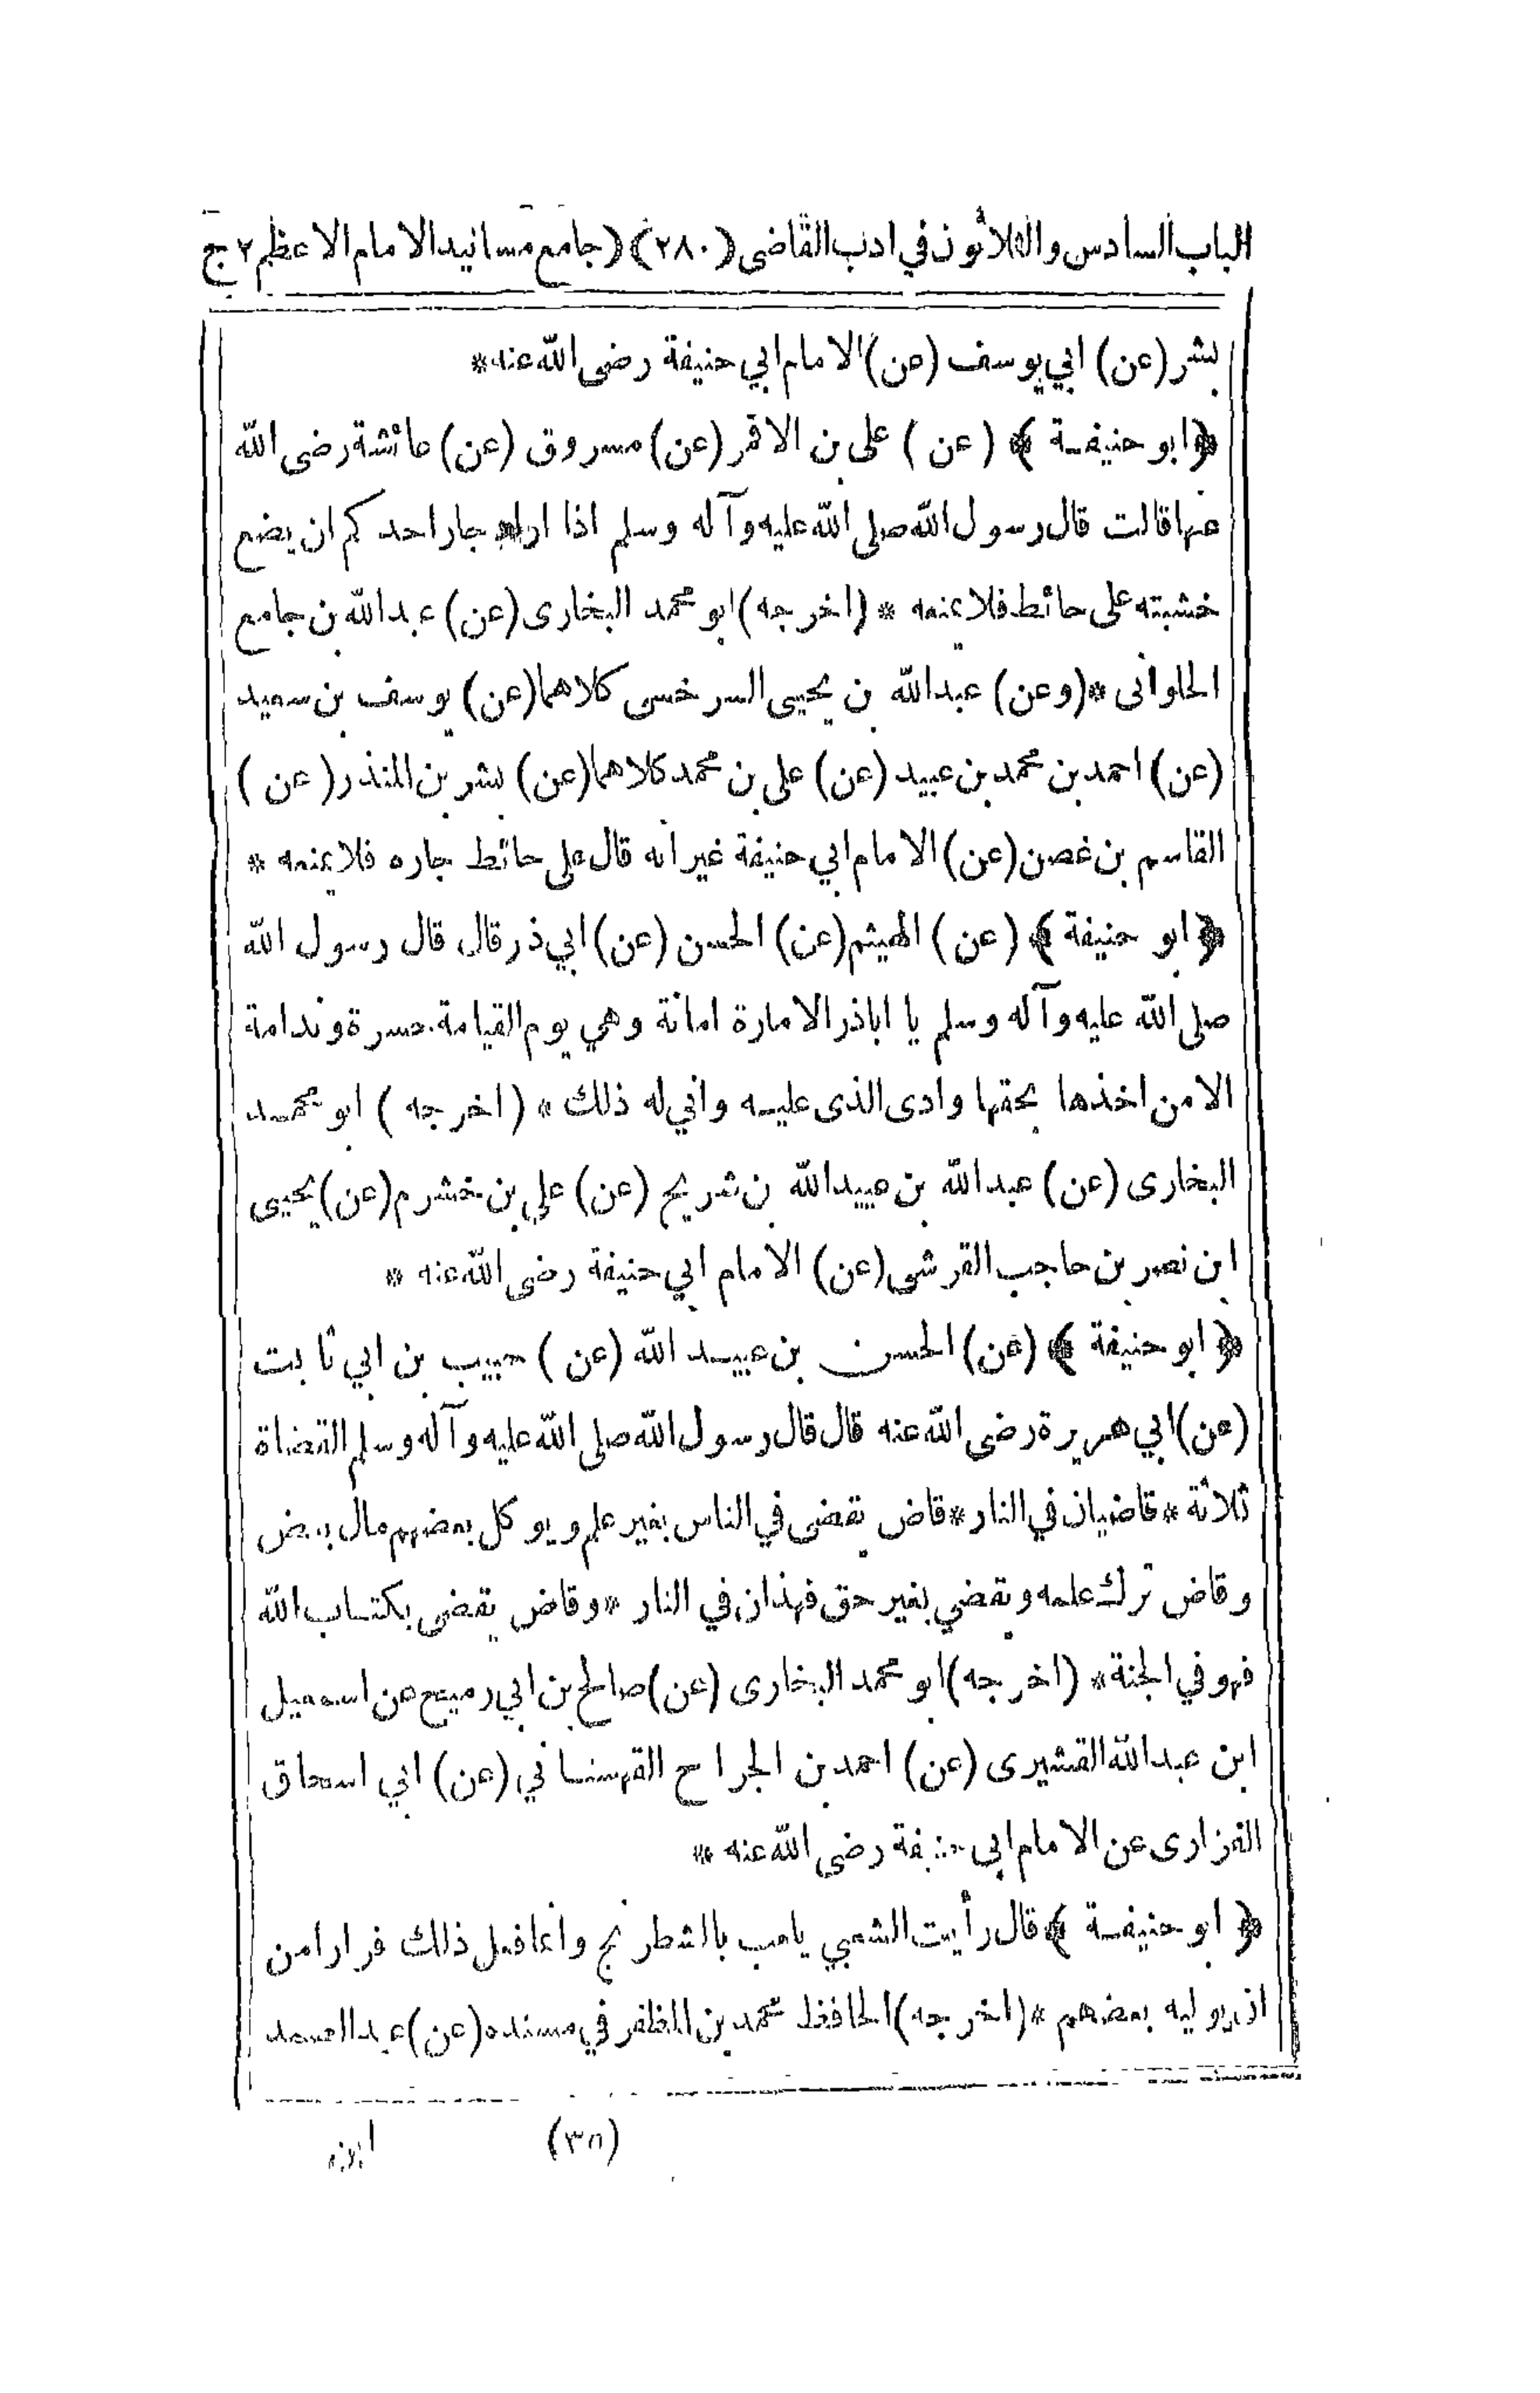 الباب السادس والثلاثون في ادب القاضى (٢٨٠) (جامع مسانيد الامام الاعظم ٢ ج
بشر (عن) ابي يوسف (عن) الامام ابي حنيفة رضى الله عنه *
﴿ ابو حنيفة ﴾ (عن) على بن الاقمر (عن) مسروق (عن) عائشة رضى الله
عنها قالت قال رسول الله صلى الله عليه وآله وسلم اذا اراد جار احدكم ان يضع
خشبته على حائط فلا يمنعه * (اخرجه) ابو محمد البخارى (عن) عبد الله بن جامع
الحلوانى * (وعن) عبد الله بن يحيى السرخسى كلاهما (عن) يوسف بن سعيد
(عن) احمد بن محمد بن عبيد (عن) على بن محمد كلاهما (عن) بشر بن المنذر (عن)
القاسم بن غصن (عن) الامام ابي حنيفة غير انه قال على حائط جاره فلا يمنعه *
﴿ ابو حنيفة ﴾ (عن) الهيثم (عن) الحسن (عن) ابي ذر قال قال رسول الله
صلى الله عليه وآله وسلم يا اباذر الامارة امانة وهي يوم القيامة حسرة وندامة
الا من اخذها بحقها وادى الذى عليه وانى له ذلك * (اخرجه) ابو محمد
البخارى (عن) عبد الله بن عبيد الله بن شريح (عن) علي بن خشرم (عن) يحيى
ابن نصر بن حاجب القرشى (عن) الامام ابي حنيفة رضى الله عنه *
﴿ ابو حنيفة ﴾ (عن) الحسن بن عبيد الله (عن) حبيب بن ابي ثابت
(عن) ابي هريرة رضى الله عنه قال قال رسول الله صلى الله عليه وآله وسلم القضاة
ثلاثة * قاضيان في النار * قاض يقضى في الناس بغير علم ويوكل بعضهم مال بعض
وقاض ترك علمه ويقضي بغير حق فهذان في النار * وقاض يقضى بكتاب الله
فهو في الجنة * (اخرجه) ابو محمد البخارى (عن) صالح بن ابي رميح عن اسمعيل
ابن عبد الله القشيرى (عن) احمد بن الجراح القهستاني (عن) ابي اسحاق
الفزارى عن الامام ابي حنيفة رضى الله عنه *
﴿ ابو حنيفة ﴾ قال رأيت الشعبي يلعب بالشطرنج وانما فعل ذلك فرارا من
ان يوليه بعضهم * (اخرجه) الحافظ محمد بن المظفر في مسنده (عن) عبد الصمد
(٣٥)